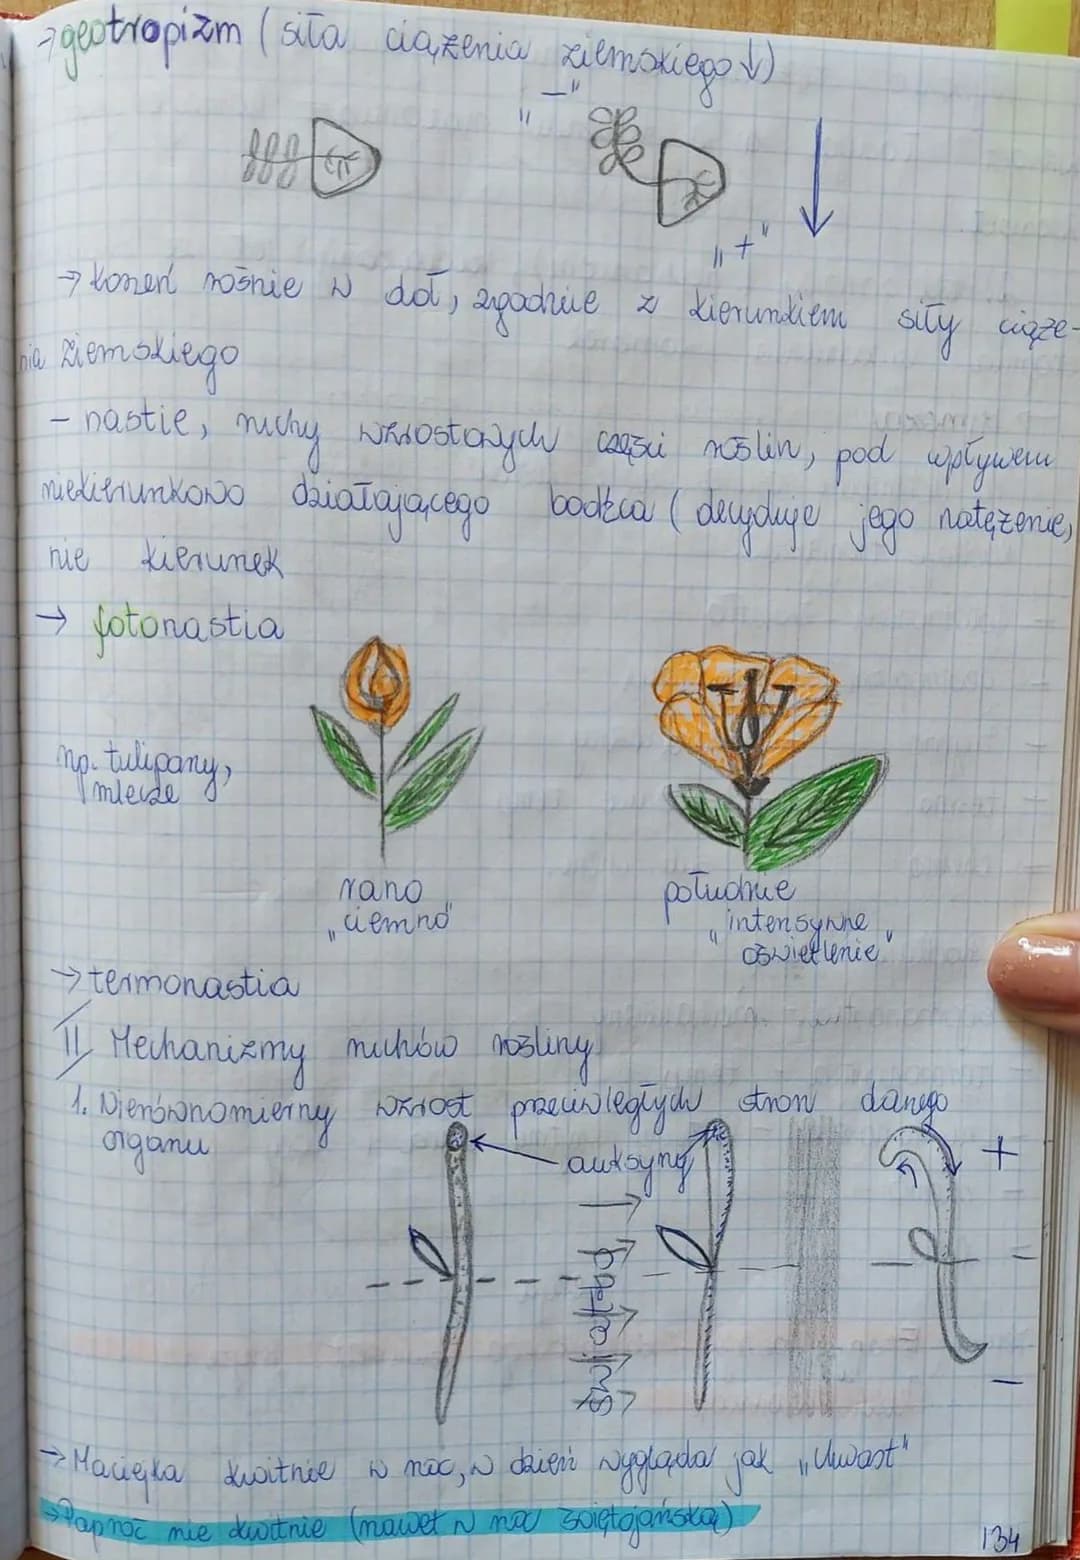 → geotropizm (siła ciążenia ziemskiego ↓)
„-"
„+"
→ korzeń rośnie w dół, zgodnie z kierunkiem siły ciąże-
nia ziemskiego
- nastie, ruchy wzrostowych części roślin, pod wpływem
niekierunkowo działającego bodźca (decyduje jego natężenie,
nie kierunek
→ fotonastia
np. tulipany,
mlecze
rano
„ciemno"
południe
„intensywne
oświetlenie"
→ termonastia
II Mechanizmy ruchów rośliny
1. Nierównomierny wzrost przeciwległych stron danego
organu
auksyny
światło
+
-
-
→ Maciejka kwitnie w noc, w dzień wygląda jak „chwast"
→ Paproć nie kwitnie (nawet w noc świętojańską)
134